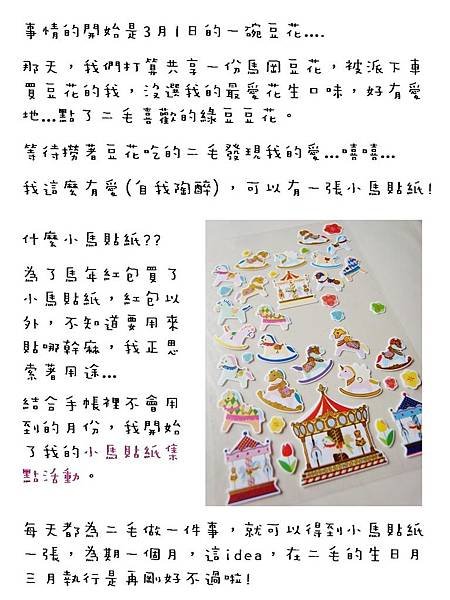 事情的開始是3月1日的一碗豆花….
那天，我們打算共享一份馬岡豆花，被派下車
買豆花的我，沒選我的最愛花生口味，好有愛
地…點了二毛喜歡的綠豆豆花。
等待撈著豆花吃的二毛發現我的愛…嘻嘻…
我這麼有愛(自我陶醉)，可以有一張小馬貼紙!
什麼小馬貼紙??
為了馬年紅包買了
小馬貼紙，紅包以
外，不知道要用來
貼哪幹麻，我正思
索著用途…
結合手帳裡不會用
到的月份，我開始
了我的小馬貼紙集
點活動。
每天都為二毛做一件事，就可以得到小馬貼紙
一張，為期一個月，這idea，在二毛的生日月
三月執行是再剛好不過啦!